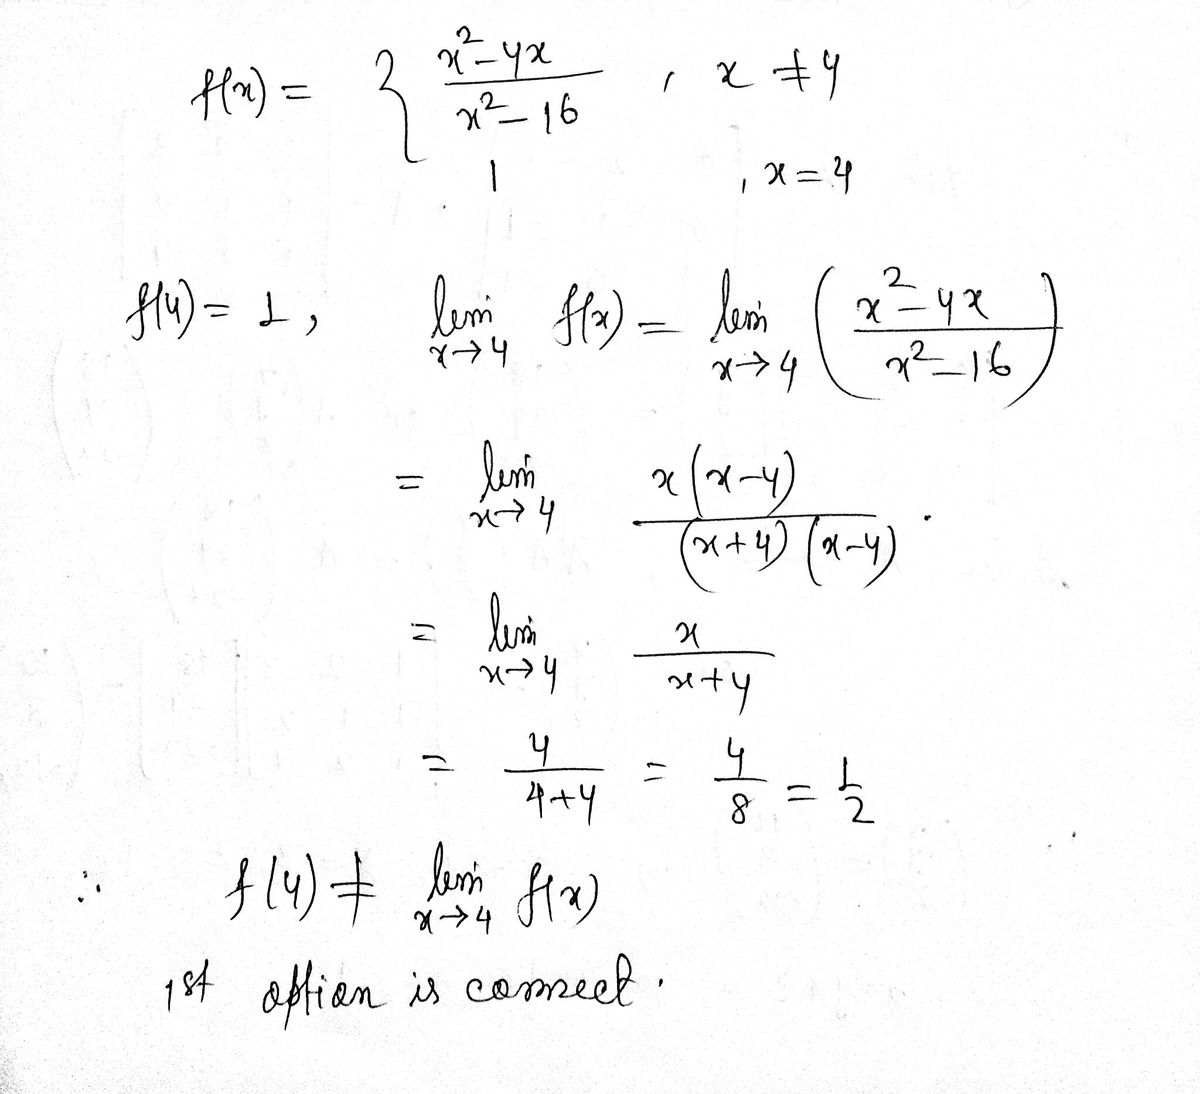 f(x) = { (x² - 4x)/(x² - 16) , x ≠ 4
1 , x = 4
f(4) = 1 , lim x→4 f(x) = lim x→4 ((x² - 4x)/(x² - 16))
= lim x→4 x(x-4)/((x+4)(x-4)) .
= lim x→4 x/(x+4)
= 4/(4+4) = 4/8 = 1/2
∴ f(4) ≠ lim x→4 f(x)
1st option is correct .